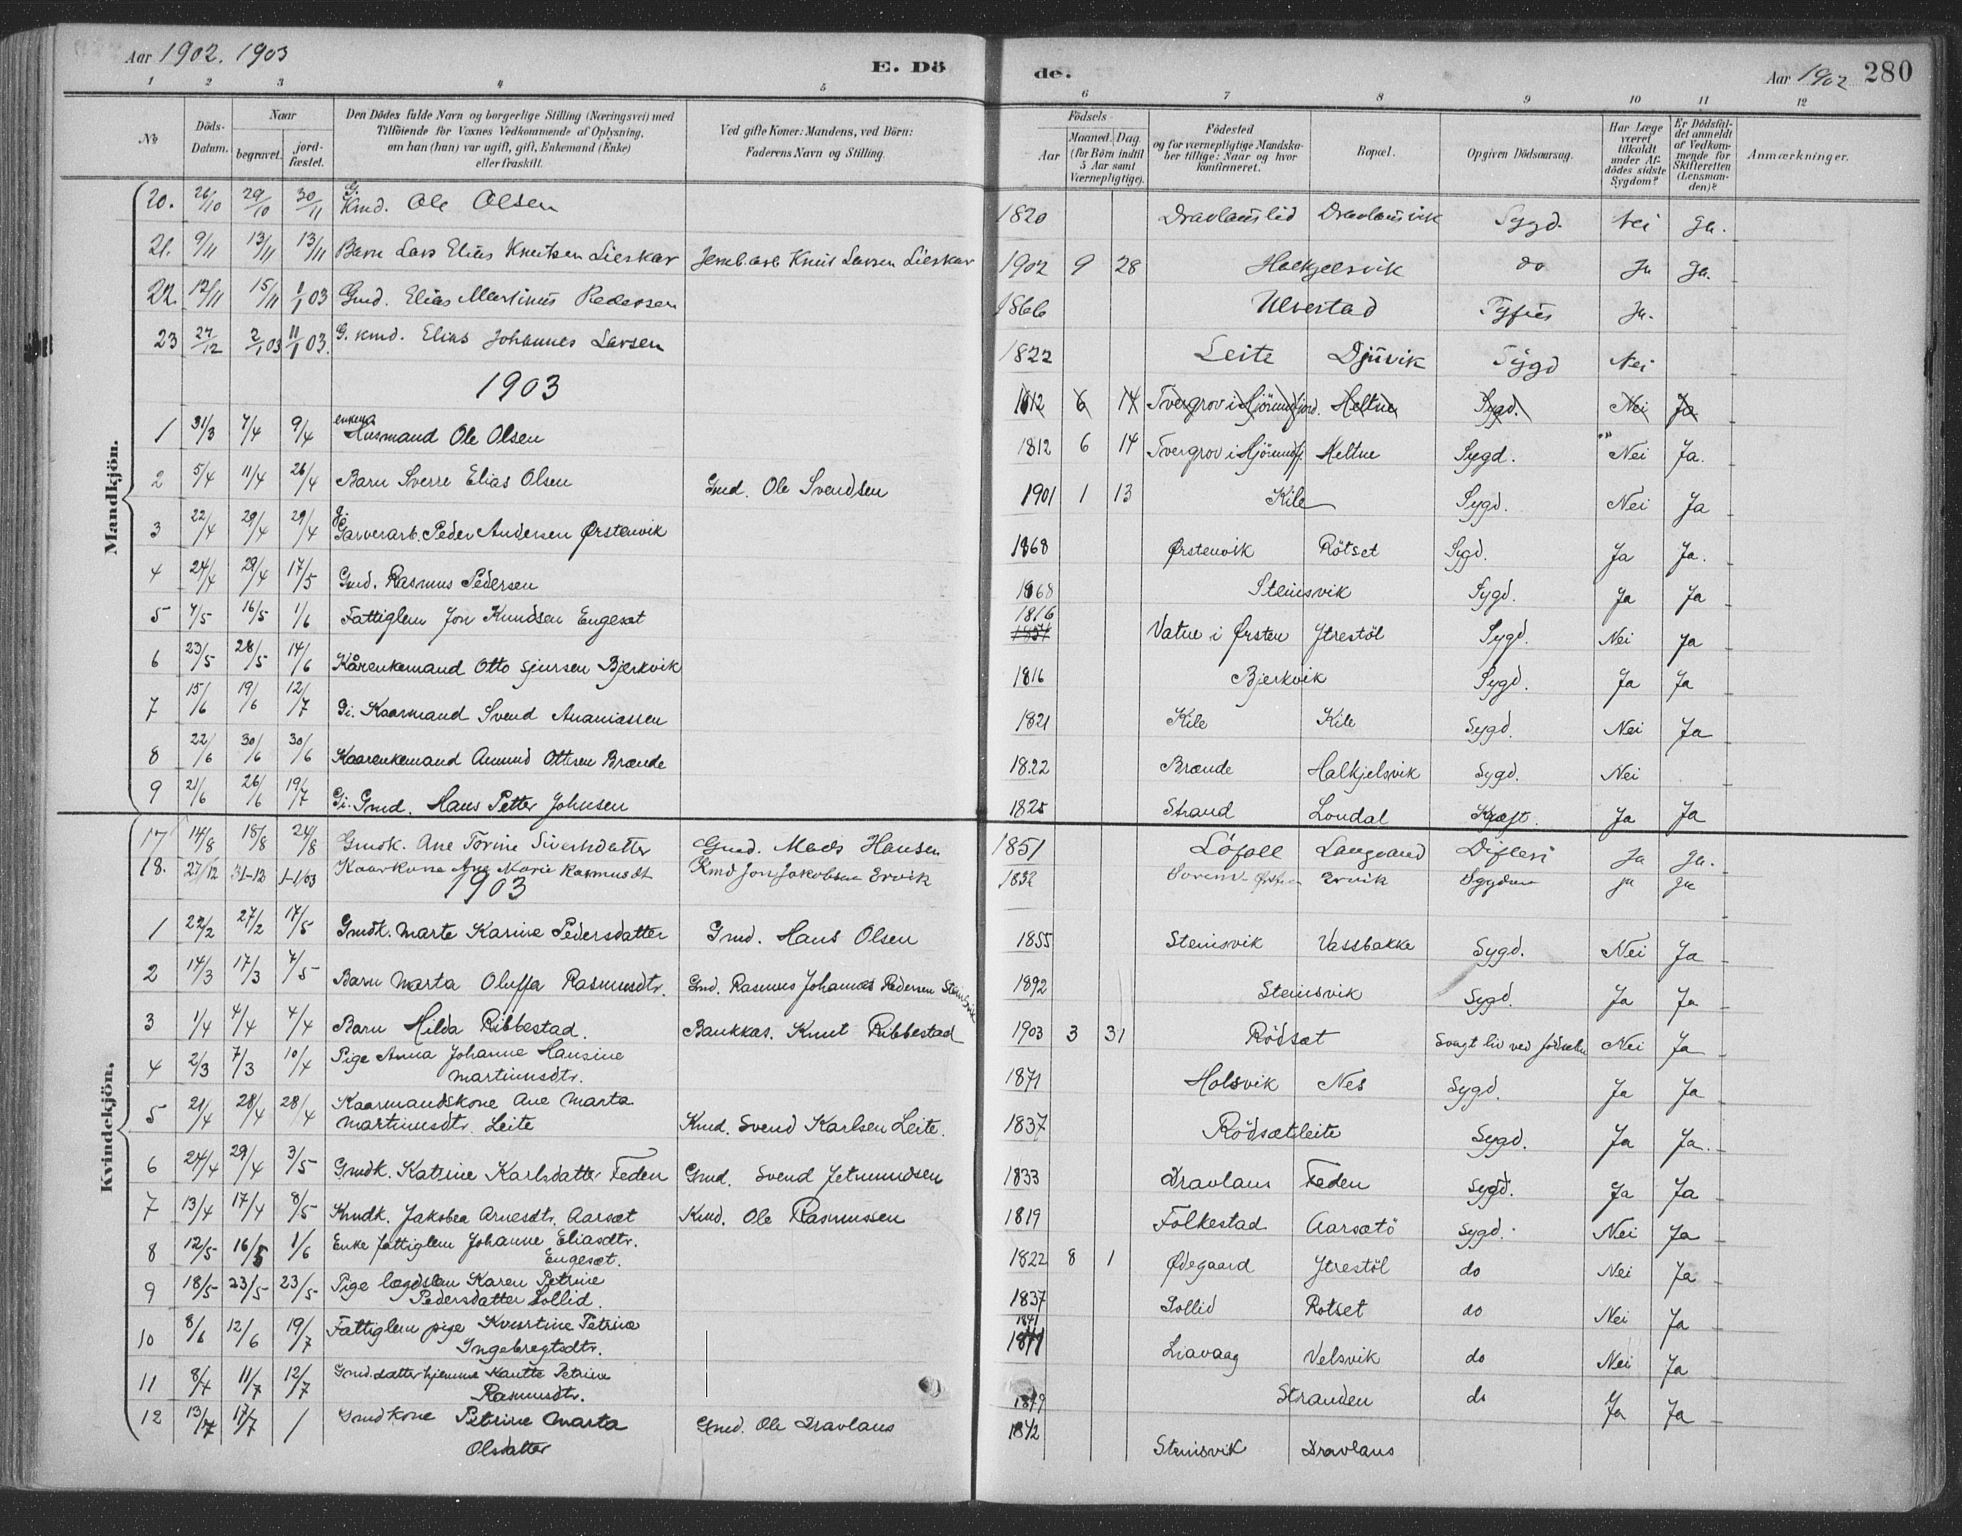 Aar 1902. 1903 E. Dö
de. Aar 1902 280
1 2 3 4 5 6 7 8 9 10 11 12
No. Döds-Datum. Naar begravet. jord-fæstet. Den Dödes fulde Navn og borgerlige Stilling (Næringsvei) med Tilföiende for Voxnes Vedkommende af Oplysning, om han (hun) var ugift, gift, Enkemand (Enke) eller fraskilt. Ved gifte Koner: Mandens, ved Börn: Faderens Navn og Stilling. Födsels Aar Maaned Dag (for Börn indtil 5 Aar samt Værnepligtige). Födested og for værnepligtige Mandskaber tillige: Naar og hvor konfirmeret. Bopæl. Opgiven Dödsaarsag. Har Læge været tilkaldt under Afdödes sidste Sygdom? Er Dödsfaldet anmeldt af Vedkommende for Skifteretten (Lensmanden)? Anmærkninger.
Mandkjön.
20. 26/10 29/10 30/11 G. Kmd. Ole Olsen 1820 Dravlauslid Dravlausvik Sygd. Nei Ja.
21. 9/11 13/11 13/11 Barn Lars Elias Knutsen Lieskar Jernb.arb Knut Larsen Lieskar 1902 9 28 Halkjelsvik do Ja Ja.
22. 12/11 15/11 1/1 03 Gmd. Elias Martinus Pedersen 1866 Ulvestad Tyfus Ja.
23 27/12 2/1 03 11/1 03. G. kmd. Elias Johannes Larsen 1822 Leite Djuvik Sygd Nei
1903
1812 6 14 Tvergrov i Hjörundfjord. Heltne Sygd. Nei Ja
1 31/3 7/4 9/4 enkem. Husmand Ole Olsen 1812 6 14 Tvergrov i Hjörundfj. Heltne Sygd. Nei Ja.
2 5/4 11/4 26/4 Barn Sverre Elias Olsen Gmd. Ole Svendsen 1901 1 13 Kile Sygd. Nei Ja
3 22/4 29/4 29/4 g. Garverarb. Peder Andersen Ørstenvik 1868 Ørstenvik Rötset Sygd. Ja Ja.
4 24/4 29/4 17/5 Gmd. Rasmus Pedersen 1868 Stensvik Sygd. Ja Ja
5 7/5 16/5 1/6 Fattiglem Jon Knudsen Engeset 1816 Vatne i Ørsten Ytrestöl Sygd. Nei Ja
6 23/5 28/5 14/6 Kårenkemand Otto Sjursen Bjerkvik 1816 Bjerkvik Sygd. Ja Ja
7 15/6 19/6 12/7 Gi. Kaarmand Svend Ananiassen 1821 Kile Kile Sygd. Nei Ja
8 22/6 30/6 30/6 Kaarenkemand Amund Ottesen Brænde 1822 Brænde Halkjelsvik Sygd. Nei
9 21/6 26/6 19/7 Gi. Gmd. Hans Petter Johnsen 1825 Strand Loudal Kræft. Ja Ja
Kvindekjön.
17 14/8 18/8 24/8 Gmdk. Ane Torine Sivertsdatter Gmd. Mads Hansen 1851 Löfoll Langvand Difteri Ja Ja.
18. 27/12 31-12 1-1/03 Kaarkone Ane Marie Rasmusdt Kmd Jon Jakobsen Ervik 1832 Ervik Sygdom Ja Ja
1903
1 22/2 27/2 17/5 Gmdk. Marte Karine Pedersdatter Gmd. Hans Olsen 1855 Stensvik Vassbakke Sygd. Nei Ja
2 14/3 17/3 4/5 Barn Marta Oluffa Rasmusdtr. Gmd. Rasmus Johannes Pedersen Stensvik 1892 Stensvik Sygd. Ja Ja
3 1/4 4/4 4/4 Barn Hilda Ribbestad. Bankkas. Knut Ribbestad 1903 3 31 Rödsæt Svagt liv ved födselen Nei Ja
4 2/3 7/3 10/4 Pige Anna Johanne Hansine
Martinusdtr. 1871 Holsvik Nes Sygd. Ja Ja
5 21/4 28/4 28/4 Kaarmandskone Ane Marta
Martinusdtr. Leite Kmd. Svend Karlsen Leite. 1837 Rödsætleite Sygd. Ja Ja.
6 24/4 29/4 3/5 Gmdk. Katrine Karlsdatter Feden Gmd. Svend Jetmundsen 1833 Dravlaus Feden Sygd. Ja Ja
7 13/4 17/4 8/5 Kmdk. Jakobea Arnesdtr. Aarsæt Kmd. Ole Rasmussen 1819 Folkestad Aarsætö Sygd. Nei Ja
8 12/5 16/5 1/6 Enke fattiglem Johanne Eliasdtr.
Engesæt. 1822 8 1 Ødegaard Ytrestöl do Nei Ja
9 18/5 23/5 23/5 Pige lægdslem Karen Petrine
Pedersdatter Sollid. 1837 Sollid Rotset do Nei Ja
10 8/6 12/6 19/7 Fattiglem pige Petrine
Ingebregtsdtr. 1841 Liavaag Velsvik do Nei Ja
11 8/7 11/7 12/7 Gmd.datter hjemme Petrine
Rasmusdtr. 1879 Stranden do Ja Ja
12 13/7 17/7 / Gmdkone Petrine Marta
Olsdatter Gmd. Ole Dravlaus 1842 Stensvik Dravlaus